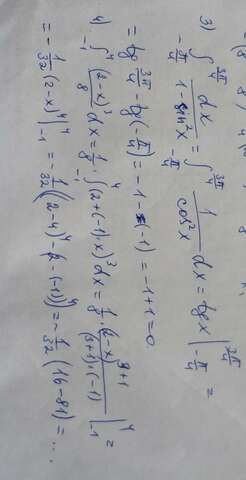 3) ∫_{-π/4}^{3π/4} dx/(1-sin²x) = ∫_{-π/4}^{3π/4} 1/cos²x dx = tg x |_{-π/4}^{3π/4} =
= tg 3π/4 - tg(-π/4) = -1 - (-1) = -1+1 = 0
4) ∫_{-1}^{4} (2-x)³/8 dx = 1/8 · ∫_{-1}^{4} (2+(-1)x)³dx = 1/8 · (2-x)^{3+1}/((3+1)·(-1)) |_{-1}^{4} =
= -1/32 (2-x)⁴ |_{-1}^{4} = -1/32 ((2-4)⁴ - (2-(-1))⁴) = -1/32 (16-81) = ...